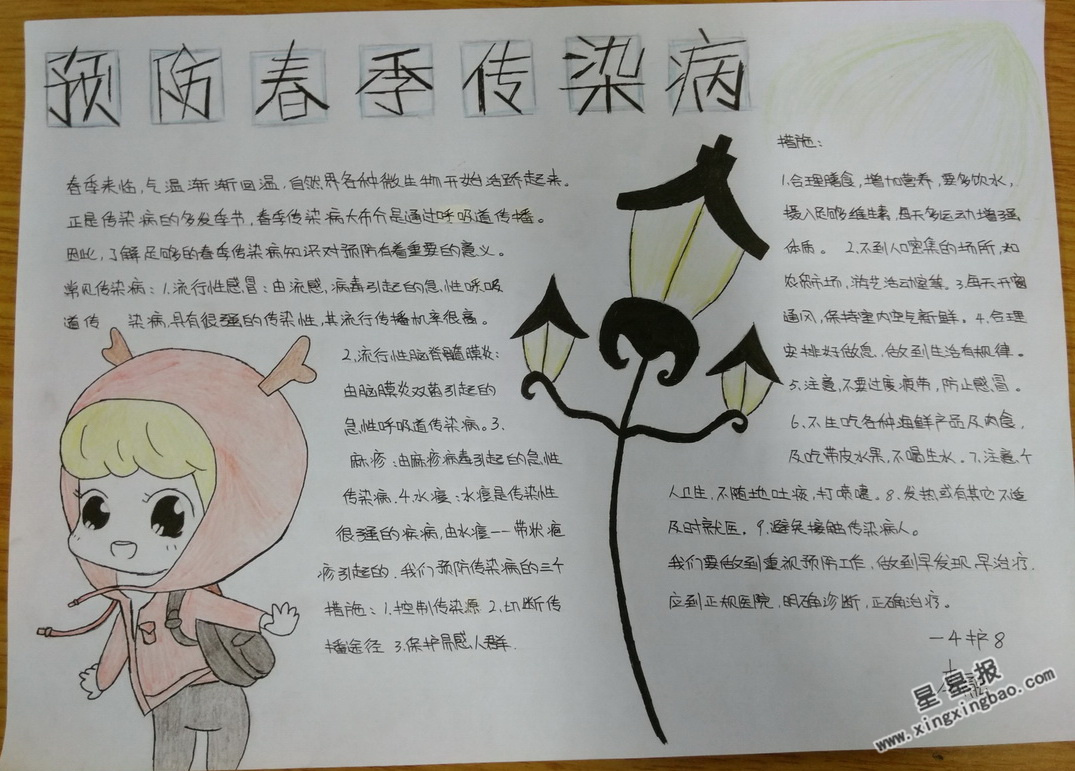 预防春季传染病
春季来临,气温渐渐回温,自然界各种微生物开始活跃起来。
正是传染病的多发季节,春季传染病大部分是通过呼吸道传播。
因此,了解足够的春季传染病知识对预防有着重要的意义。
常见传染病:1.流行性感冒:由流感,病毒引起的急性呼吸
道传 染病,具有很强的传染性,其流行传播机率很高。
2.流行性脑脊髓膜炎:
由脑膜炎双菌引起的
急性呼吸道传染病。3.
麻疹:由麻疹病毒引起的急性
传染病.4.水痘:水痘是传染性
很强的疾病,由水痘——带状疱
疹引起的.我们预防传染病的三个
措施:1.控制传染源 2.切断传
播途径 3.保护易感人群.
措施:
1.合理膳食,增加营养,要多饮水,
摄入足够维生素,每天多运动增强
体质。 2.不到人口密集的场所,如
农贸市场,游艺活动室等。3.每天开窗
通风,保持室内空气新鲜。4.合理
安排好做息,做到生活有规律。
5.注意,不要过度疲劳,防止感冒。
6.不生吃各种海鲜产品及肉食,
及吃带皮水果,不喝生水。7.注意个
人卫生,不随地吐痰,打喷嚏。8.发热或有其它不适
及时就医。9.避免接触传染病人。
我们要做到重视预防工作,做到早发现.早治疗.
应到正规医院,明确诊断,正确治疗。
一4护8
星星报
www.xingxingbao.com